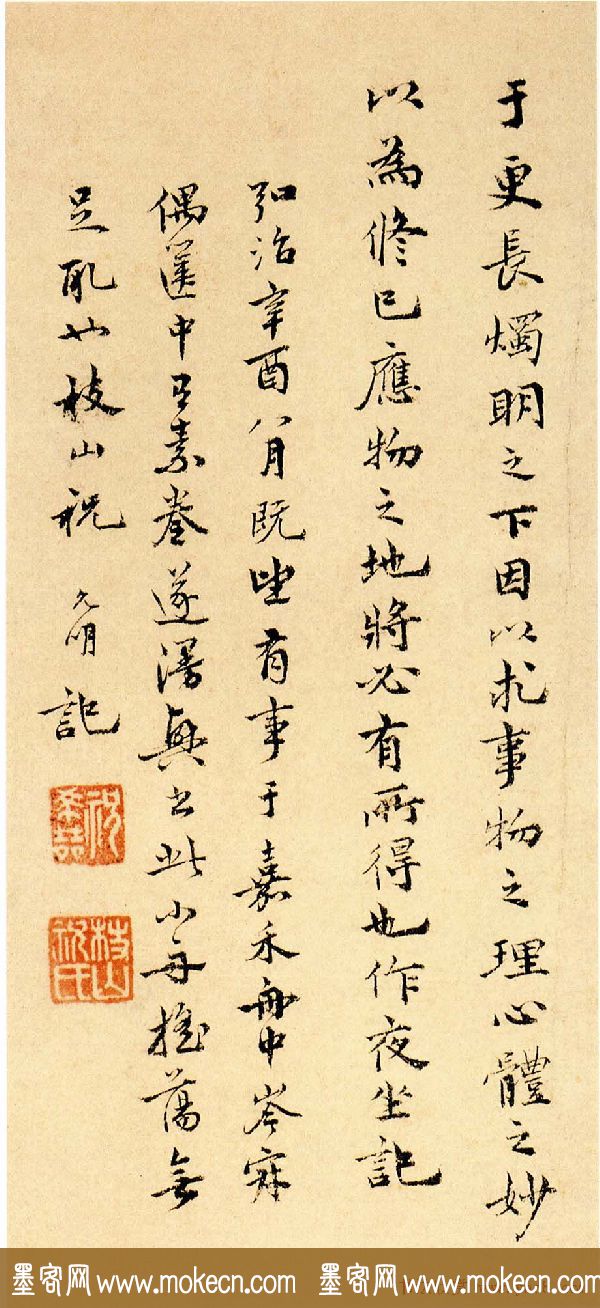 于更長燭明之下因以求事物之理心體之妙
以為修已應物之地將必有所得也作夜坐記
弘治辛酉八月既望有事于嘉禾舟中岑寂
偶篋中素卷遂漫興書此小舟搖蕩無
足取也枝山祝允明記
祝希哲
枝山祝氏
墨客网 www.mokecn.com 墨客网 www.mokecn.com